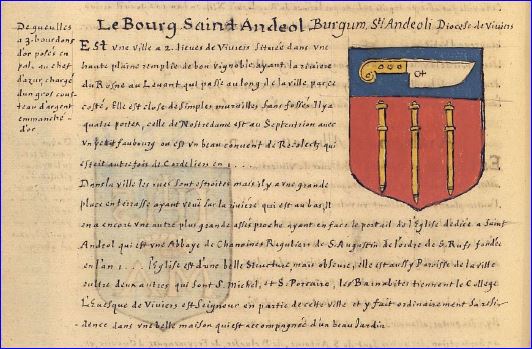 Le Bourg Sainct Andeol, Burgum Sti Andeoli Diocese de Viviers
De gueulles
a 3. bourdons
d'or posés en
pal, au chef
d'azur chargé
d'un gros cous-
teau d'argent
emmanché
d'or
Est une ville a 2. lieues de Viviers située dans une
haute plaine remplie de bon vignoble, ayant la riviere
du Rosne au Levant qui passe au long d la ville par ce
costé, Elle est close de simples murailles sans fossés. Il y a
quatre portes, celle de Nostredame est au Septentrion avec
un petit fauxbourg ou est un beau convent de Recolects qui
estoit autrefois de Cordeliers en 1....
Dans la ville les rues sont estroites mais il y a une grande
place en terrasse ayant veüe sur la riviere qui est au bas, Il
en a encore une autre plus grande assés proche ayant en face le portail de l'Eglise dediée a Saint
Andeol qui est une Abbaye de Chanoines Reguliers de S. Augustin de l'ordre de S. Rufs fondée
en l'an 1.... l'Eglise est d'une belle structure, mais obscure, elle est aussy Paroisse de la ville
oultre deux autres qui sont S. Michel, et S. Porcaire, les Barnabites tiennent le College
L'Evesque de Viviers est Seigneur en partie de cette ville et y fait ordinairement sa resi-
dence dans une belle maison qui est accompagnée d'un beau Jardin